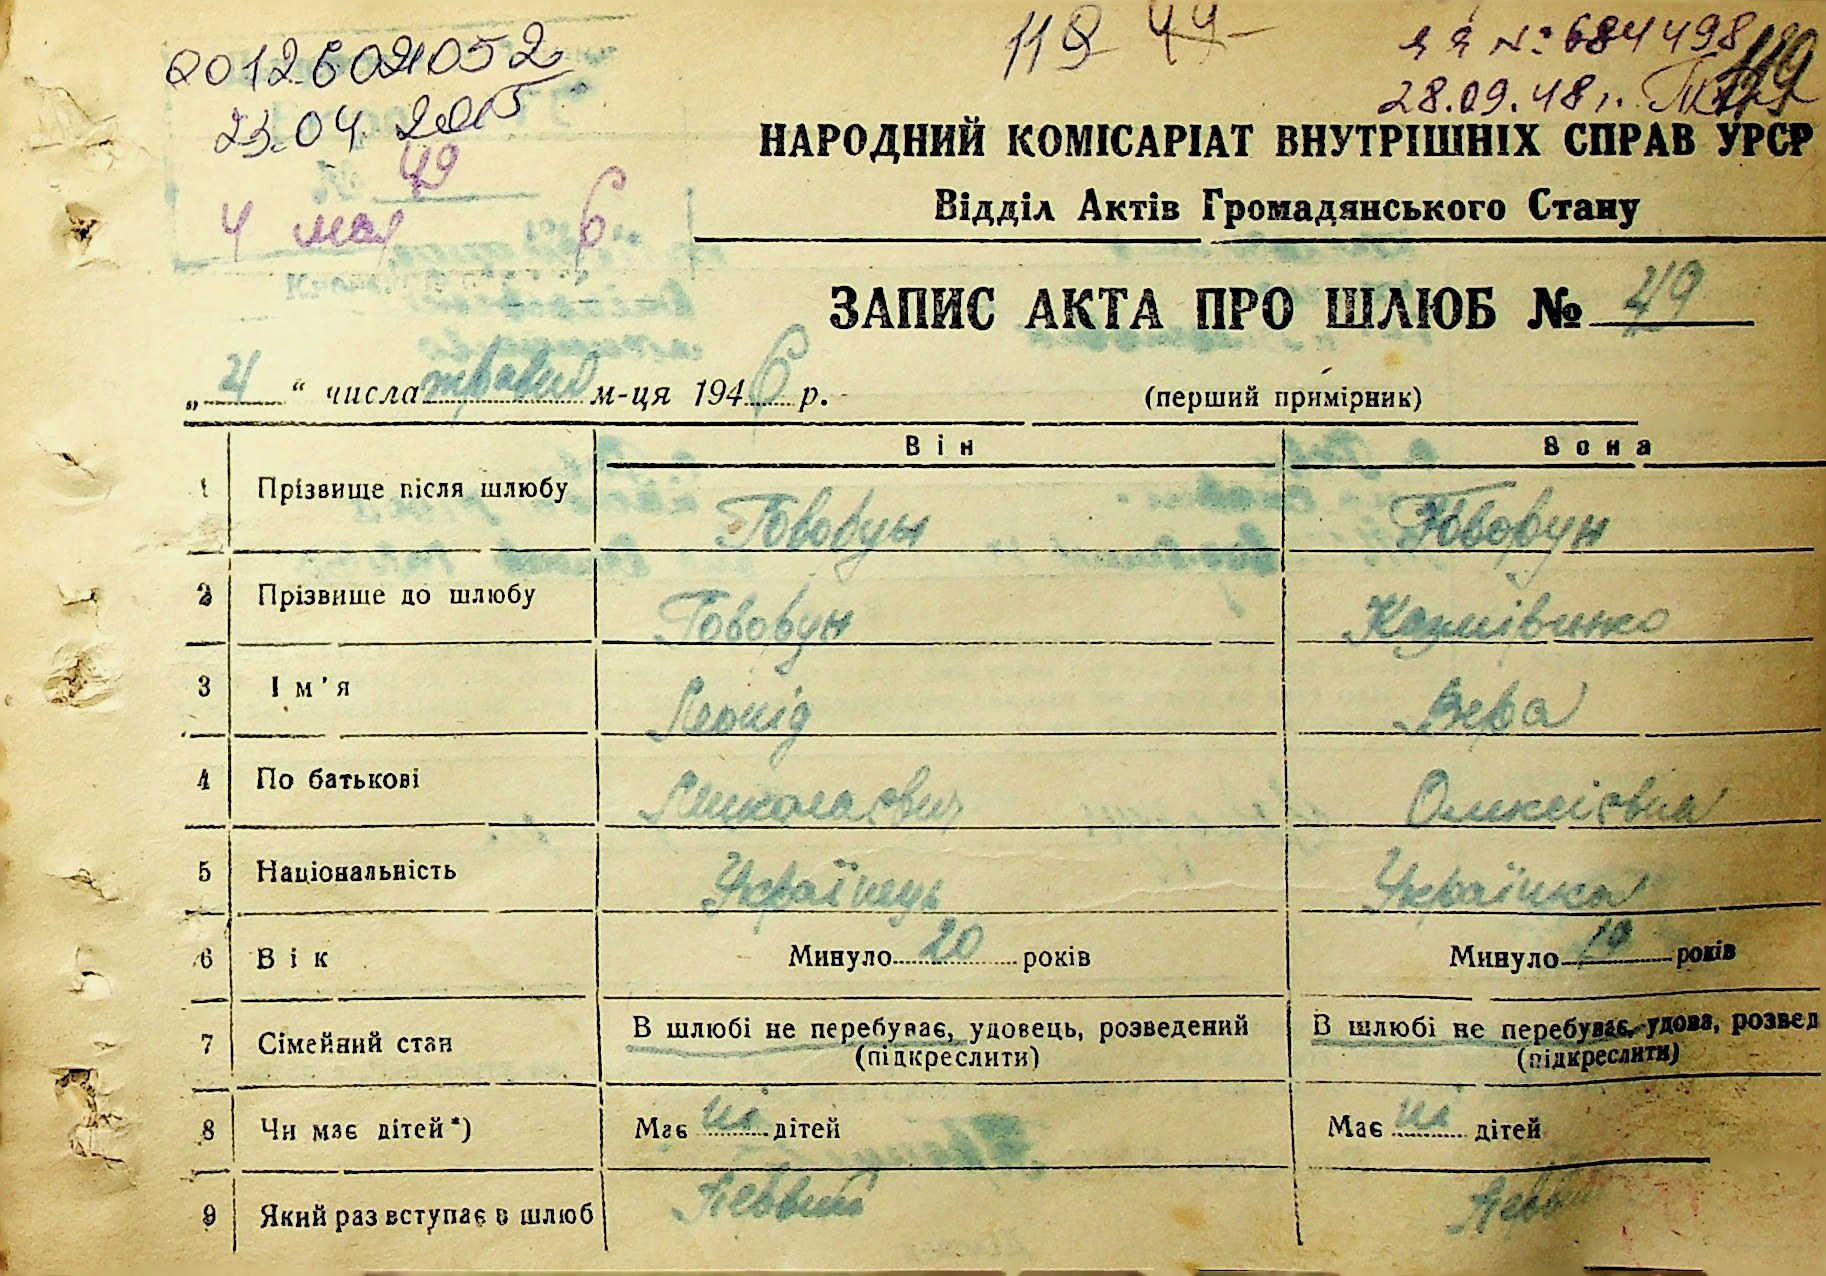 00126021052
23.04.2015
49
4 мая 6
119 44
я я № 684498 119
28.09.48 г.
НАРОДНИЙ КОМІСАРІАТ ВНУТРІШНІХ СПРАВ УРСР
Відділ Актів Громадянського Стану
ЗАПИС АКТА ПРО ШЛЮБ № 49
„ 4 “ числа травня м-ця 1946 р. (перший примірник)
Він Вона
1 Прізвище після шлюбу Говорун Говорун
2 Прізвище до шлюбу Говорун
3 Ім'я Леонід Вера
4 По батькові Миколаєвич Олексієвна
5 Національність Українець Українка
6 Вік Минуло 20 років Минуло 19 років
7 Сімейний стан В шлюбі не перебуває, удовець, розведений В шлюбі не перебуває, удова, розвед
(підкреслити) (підкреслити)
8 Чи має дітей*) Має ні дітей Має ні дітей
9 Який раз вступає в шлюб Первий Первий